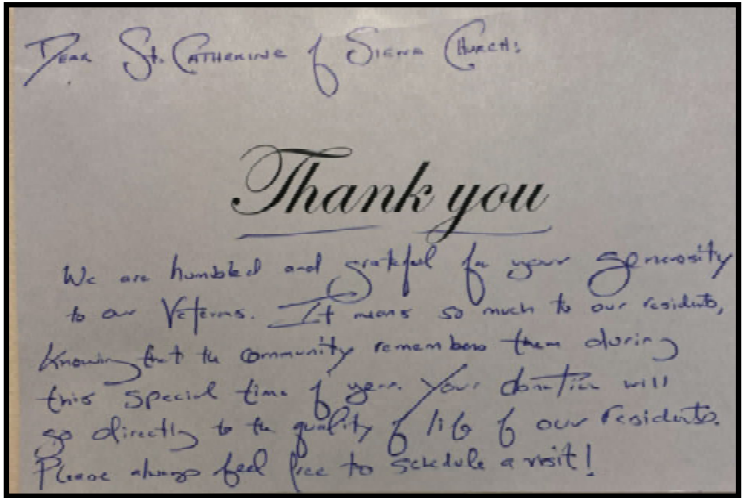 Dear St. Catherine of Siena Church:
Thank you
We are humbled and grateful for your generosity
to our Veterans. It means so much to our residents,
knowing that the community remembers them during
this special time of year. Your donation will
go directly to the quality of life of our residents.
Please always feel free to schedule a visit!